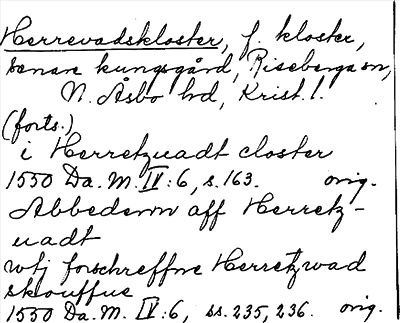 Herrevadskloster, f. kloster,
senare kungsgård, Riseberga sn,
N. Åsbo hd, Krist. l.
(forts.)
i Herretzuadt closter
1550 Da. M. IV: 6, s. 163. orig.
Abbedenn aff Herretz-
uadt
wtj forschreffne Herretzwad
skouffue
1550 Da. M. IV: 6, ss. 235, 236. orig.